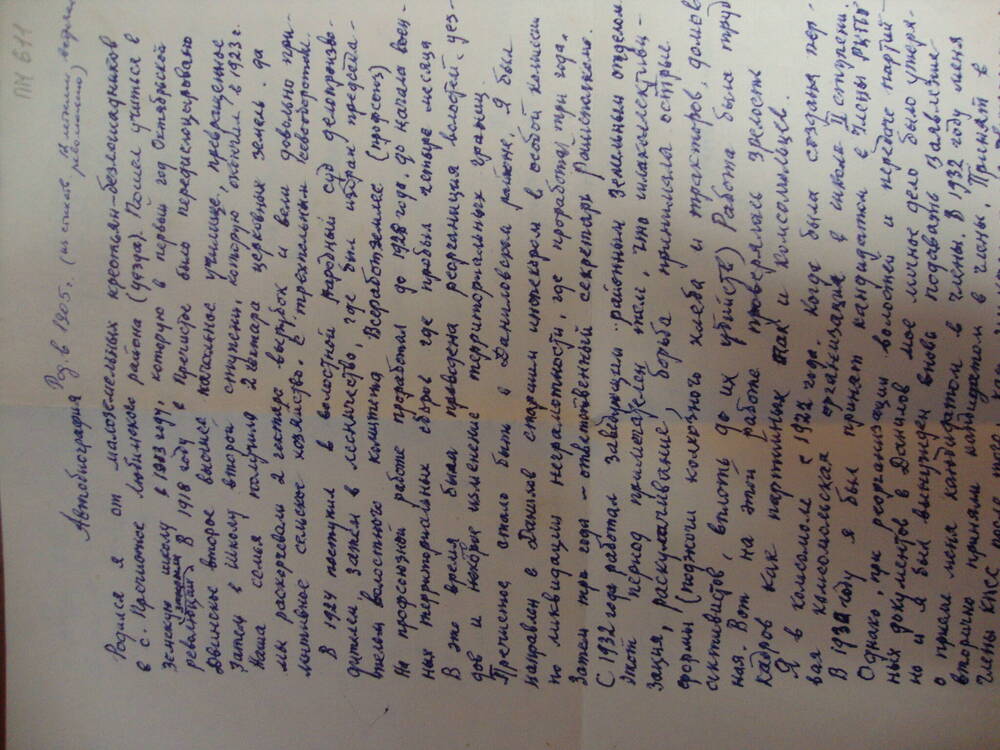 ПМ 611
Автобиография Род. в 1905г. (из стихов 12 летним встречал
революцию)
Родился я от малоземельных крестьян-безлошадников
в с. Пречистое Любимского района (уезда). Пошел учиться в
земскую школу в 1913 году, которую в первый год Октябрьской
революции закрыли В 1918 году в Пречистое было передислоцировано
Двинское второе высшее начальное училище, превращенное
затем в школу второй ступени, которую окончил в 1923 г.
Наша семья получила 2 гектара церковных земель, да
мы раскорчевали 2 гектара вырубок и вели довольно при-
митивное сельское хозяйство. с трехпольным севооборотом.
В 1924 поступил в волостной народный суд делопроизво-
дителем, затем в лесничество, где был избран председа-
телем волостного комитета Всеработземлес (профсоюз)
На профсоюзной работе проработал до 1928 года, до начала воен-
ных территориальных сборов где пробыл четыре месяца
В это время была проведена реорганиция волостей, уез-
дов и некоторое изменение территориальных границ.
Пречистое стало быть в Даниловском районе. Я был
направлен в Данилов старшим инспектором в особой комиссии
по ликвидации неграмотности, где проработал три года.
Затем три года – ответственный секретарь Райисполкома.
С 1932 года работал заведующим районным земельным отделом
Этот период примечателен тем, что шла коллективи-
зация, раскулачивание, борьба принимала острые
формы (поджоги колхозного хлеба и тракторов, домов
активистов, вплоть до их убийств) Работа была труд
ная. Вот на этой работе проверялась зрелость
кадров как партийных так и комсомольцев.
Я в комсомоле с 1922 года. Когда была создана пер-
вая комсомольская организация в школе II ступени.
В 1930 году я был принят кандидатом в члены РКПб
Однако, при реорганизации волостей и передаче партий-
ных документов в Данилов мое личное дело было утеря-
но и я был вынужден вновь подавать заявление
о приеме меня кандидатом в члены. В 1932 году меня
вторично приняли кандидатом в члены. Принят в
члены КПСС после того, как